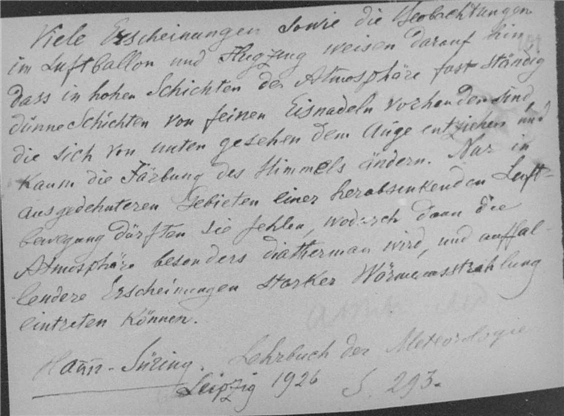 Viele Erscheinungen sowie die Beobachtungen
im Luftballon und Flugzeug weisen darauf hin
dass in hohen Schichten der Atmosphäre fast ständig
dünne Schichten von feinen Eisnadeln vorhanden sind
die sich von unten gesehen dem Auge entziehen und
kaum die Färbung des Himmels ändern. Nur in
ausgedehnteren Gebieten einer herabsinkenden Luft-
bewegung dürften sie fehlen, wodurch dann die
Atmosphäre besonders diatherman wird, und auffal-
lendere Erscheinungen starker Wärmeausstrahlung
eintreten können.
Hann-Süring. Lehrbuch der Meteorologie
Leipzig 1926 S. 293.